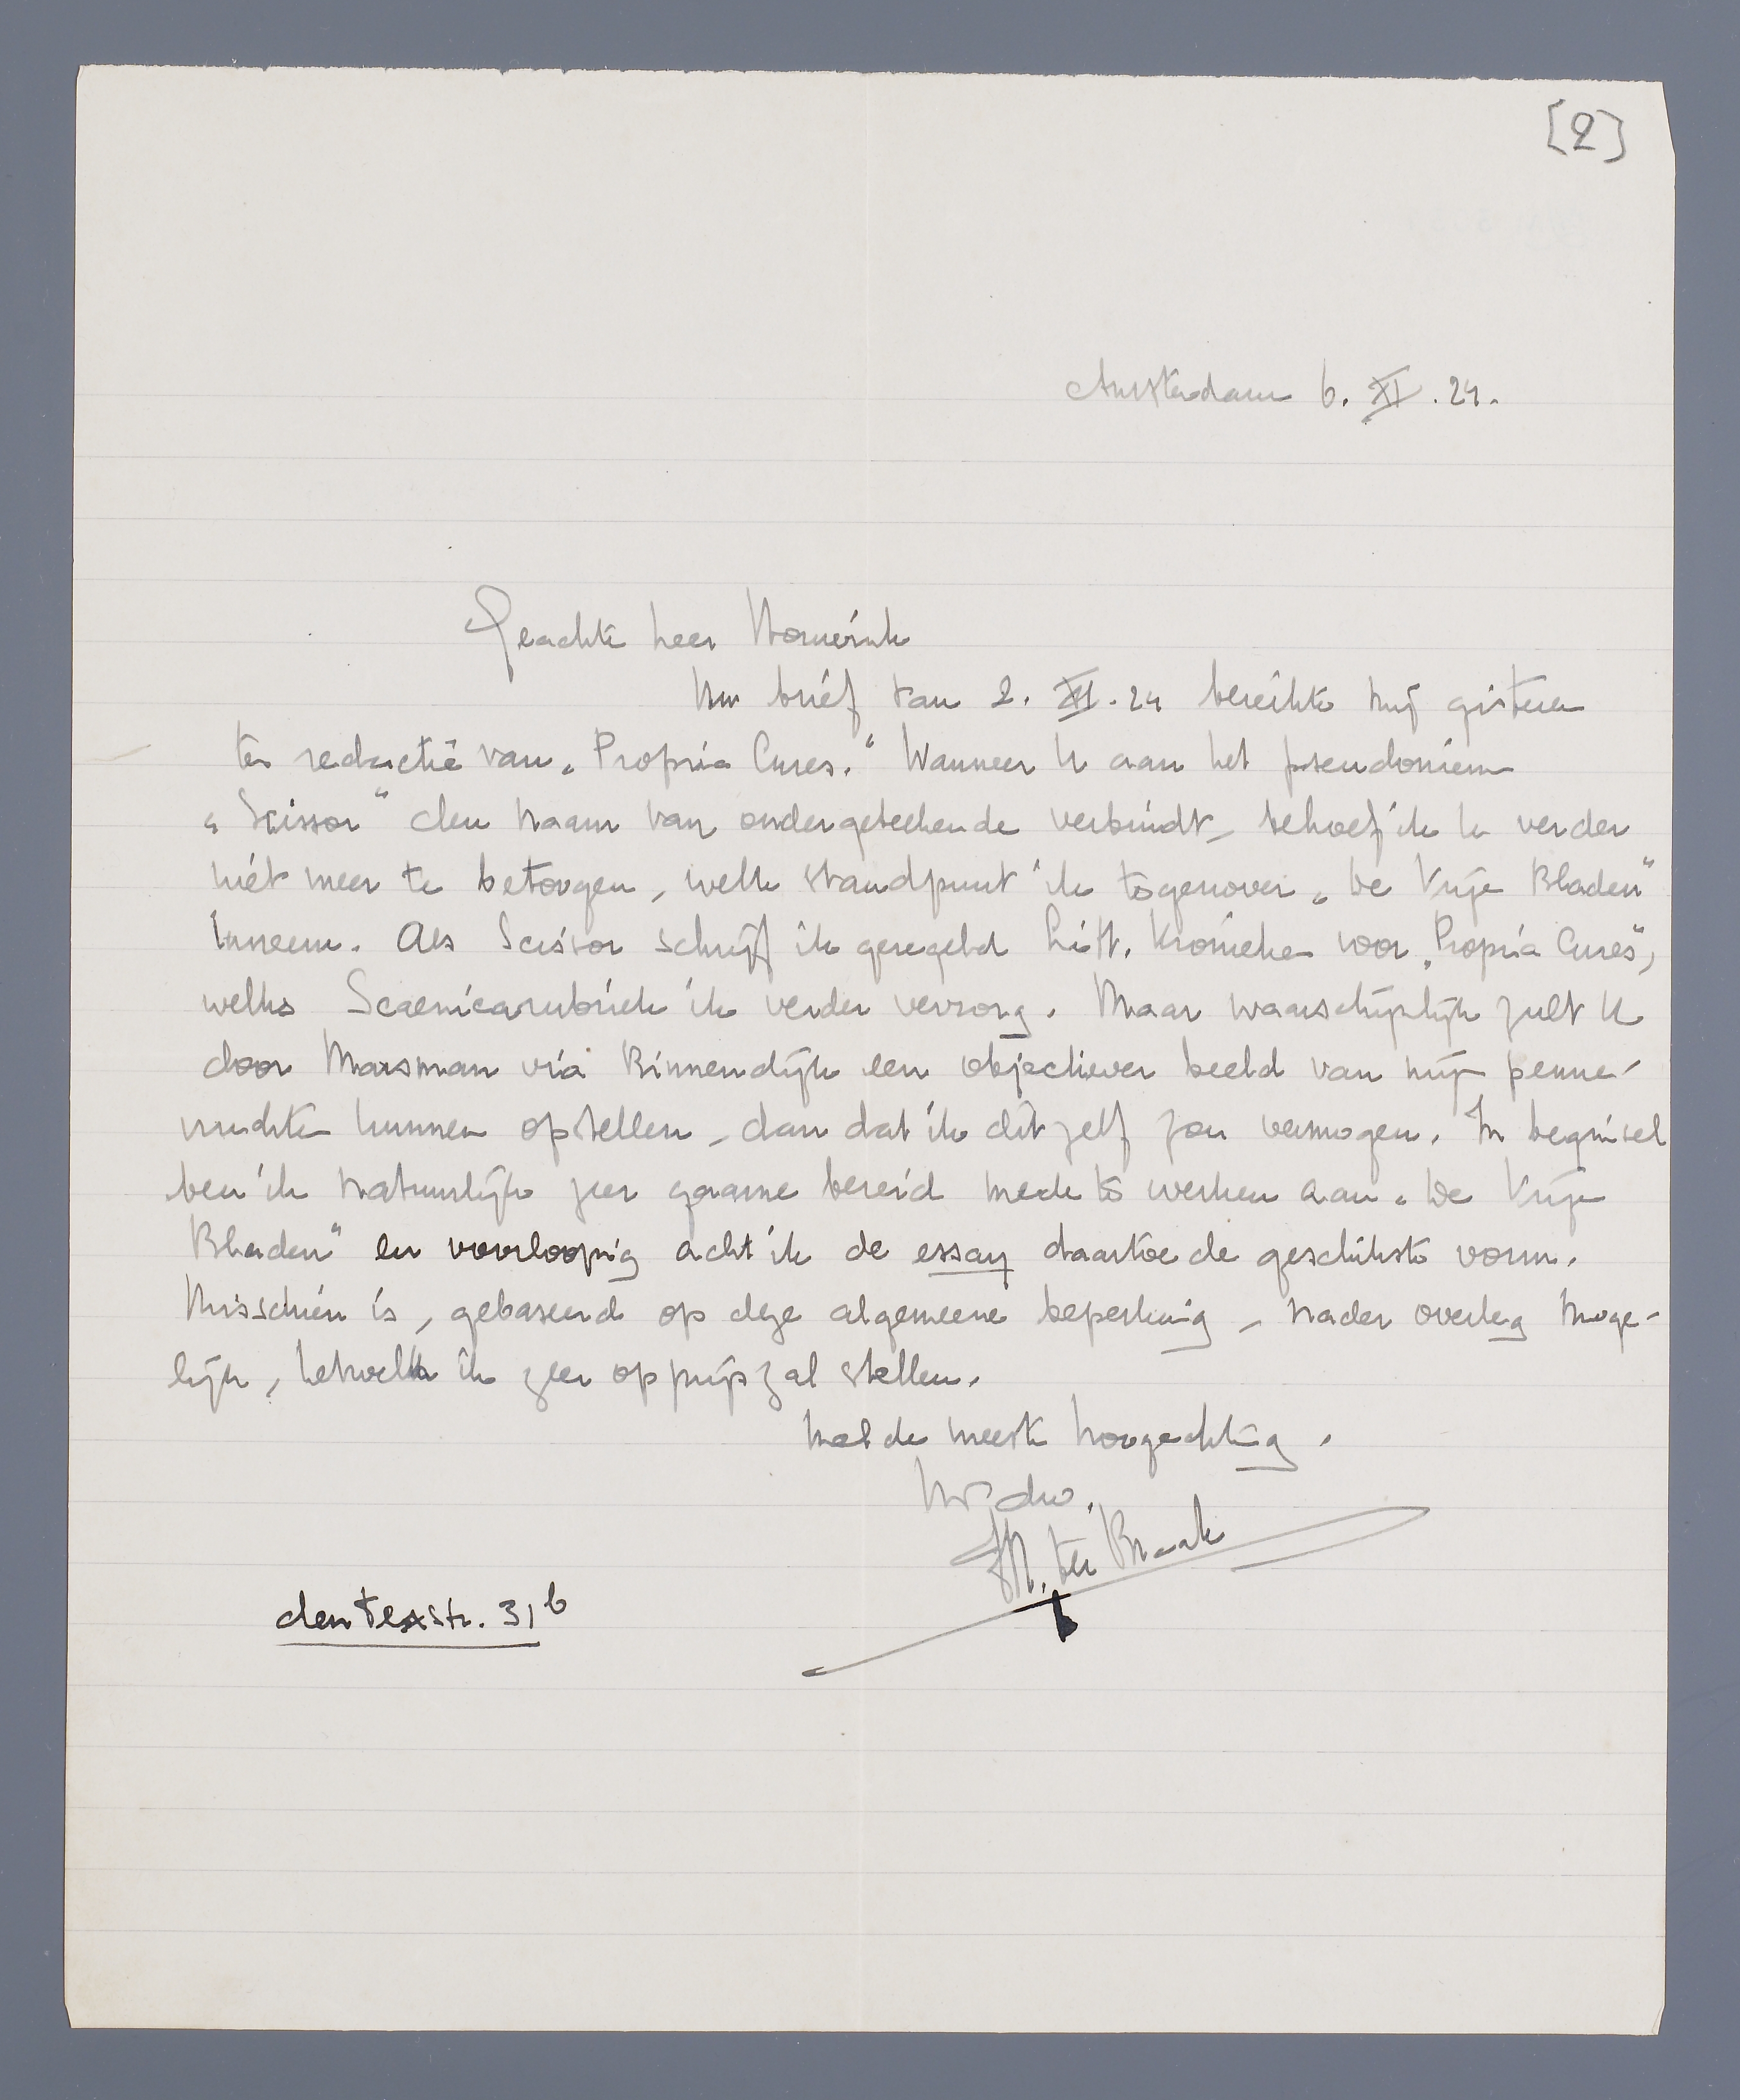 [2]
Amsterdam 6. XI. 24.
Geachte heer Houwink
Uw brief van 2. XI. 24 bereikte mij gisteren
ter redactie van „Propria Cures.“ Wanneer U aan het pseudoniem
„Scissor“ den naam van ondergeteekende verbindt, behoef ik U verder
niet meer te betoogen, welk standpunt ik tegenover „De Vrije Bladen“
inneem. Als Scissor schrijf ik geregeld Litt. Kronieken voor „Propria Cures“,
welks Scaenicarubriek ik verder verzorg. Maar waarschijnlijk zult U
door Marsman via Binnendijk een objectiever beeld van mijn penne-
vruchten kunnen opstellen, dan dat ik dit zelf zou vermogen. In beginsel
ben ik natuurlijk zeer gaarne bereid mede te werken aan „De Vrije
Bladen“ en voorloopig acht ik de essay daartoe de geschikste vorm.
Misschien is, gebaseerd op deze algemeene beperking, nader overleg moge-
lijk, hetwelk ik zeer op prijs zal stellen.
Met de meeste hoogachting,
Uw dw.
M. ter Braak
den Texstr. 31b